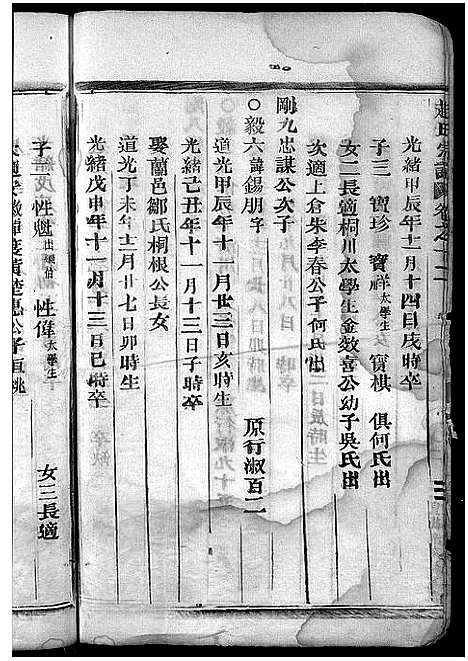 趙氏宗譜 卷之十二
光緒甲辰年十一月十四日戌時卒
子三 寶珍 寶祥太學生 寶棋 俱何氏出
女二長適桐川太學生金效喜公幼子吳氏出
次適上倉朱李春公子何氏出
剛九忠謀公次子
○毅六諱錫朋字 原行淑百二
道光甲辰年十一月廿三日亥時生
光緒己丑年十一月十三日子時卒
娶蘭邑鄒氏桐根公長女
道光丁未年十二月廿七日卯時生
光緒戊申年十一月十三日巳時卒
子二 性魁出繼伯 性偉太學生 女三長適